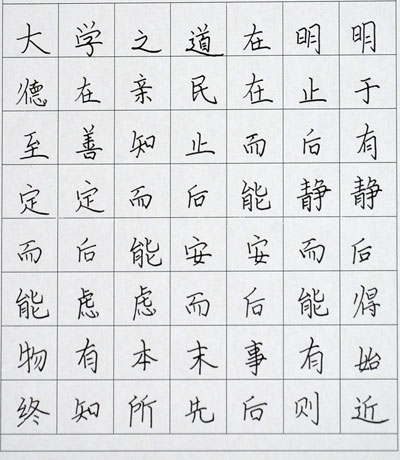 大学之道在明明
德在亲民在止于
至善知止而后有
定定而后能静静
而后能安安而后
能虑虑而后能得
物有本末事有始
终知所先后则近